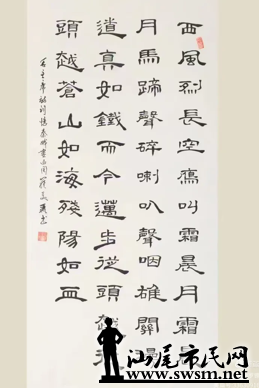 西風烈長空雁叫霜晨月霜晨
月馬蹄聲碎喇叭聲咽雄關漫
道真如鐵而今邁步從頭越從
頭越蒼山如海殘陽如血
毛主席
汕尾市民网
www.swsm.net